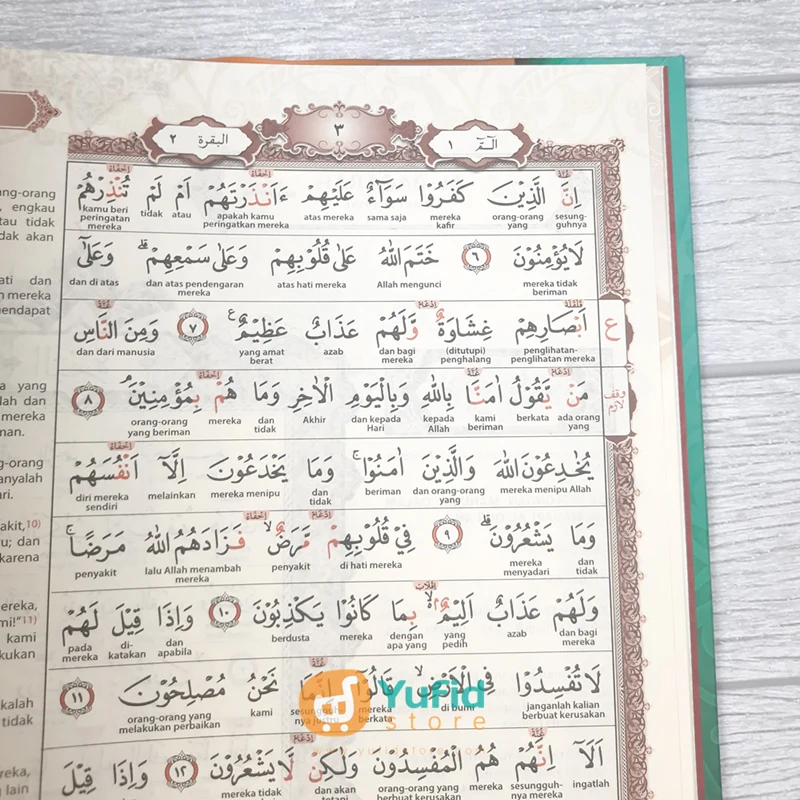 البقرة ٢
٣
الۤمّۤ ١
اِنَّ الَّذِيْنَ كَفَرُوْا سَوَاۤءٌ عَلَيْهِمْ ءَاَنْذَرْتَهُمْ اَمْ لَمْ تُنْذِرْهُمْ
sesungguhnya orang-orang yang mereka kafir sama saja atas mereka apakah kamu peringatkan mereka atau tidak kamu beri peringatan mereka
لَا يُؤْمِنُوْنَ ٦ خَتَمَ اللّٰهُ عَلٰى قُلُوْبِهِمْ وَعَلٰى سَمْعِهِمْ ۗ وَعَلٰٓى
mereka tidak beriman Allah mengunci atas hati mereka dan atas pendengaran mereka dan di atas
اَبْصَارِهِمْ غِشَاوَةٌ وَّلَهُمْ عَذَابٌ عَظِيْمٌ ࣖ ٧ وَمِنَ النَّاسِ
penglihatan-penglihatan mereka (ditutupi) penghalang dan bagi mereka azab yang amat berat dan dari manusia
ع
مَنْ يَّقُوْلُ اٰمَنَّا بِاللّٰهِ وَبِالْيَوْمِ الْاٰخِرِ وَمَا هُمْ بِمُؤْمِنِيْنَ ۘ ٨
ada orang yang berkata kami beriman kepada Allah dan kepada Hari Akhir dan tidak mereka orang-orang yang beriman
وقف لازم
يُخٰدِعُوْنَ اللّٰهَ وَالَّذِيْنَ اٰمَنُوْا ۚ وَمَا يَخْدَعُوْنَ اِلَّآ اَنْفُسَهُمْ
mereka menipu Allah dan orang-orang yang beriman dan tidak mereka menipu melainkan diri mereka sendiri
وَمَا يَشْعُرُوْنَ ۗ ٩ فِيْ قُلُوْبِهِمْ مَّرَضٌ ۙ فَزَادَهُمُ اللّٰهُ مَرَضًا ۚ
dan tidak mereka menyadari di hati mereka penyakit lalu Allah menambah mereka penyakit
وَلَهُمْ عَذَابٌ اَلِيْمٌ ۢ ۙ بِمَا كَانُوْا يَكْذِبُوْنَ ١٠ وَاِذَا قِيْلَ لَهُمْ
dan bagi mereka azab yang pedih dengan apa yang mereka berdusta dan apabila di-katakan pada mereka
لَا تُفْسِدُوْا فِى الْاَرْضِ ۙ قَالُوْٓا اِنَّمَا نَحْنُ مُصْلِحُوْنَ ١١
janganlah kalian berbuat kerusakan di bumi mereka berkata sesungguhnya justru kami orang-orang yang melakukan perbaikan
اَلَآ اِنَّهُمْ هُمُ الْمُفْسِدُوْنَ وَلٰكِنْ لَّا يَشْعُرُوْنَ ١٢ وَاِذَا قِيْلَ
ingatlah sesungguhnya mereka mereka orang-orang yang berbuat kerusakan dan akan tetapi mereka tidak
YuFid
store